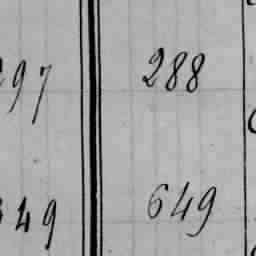 97 288
49 649